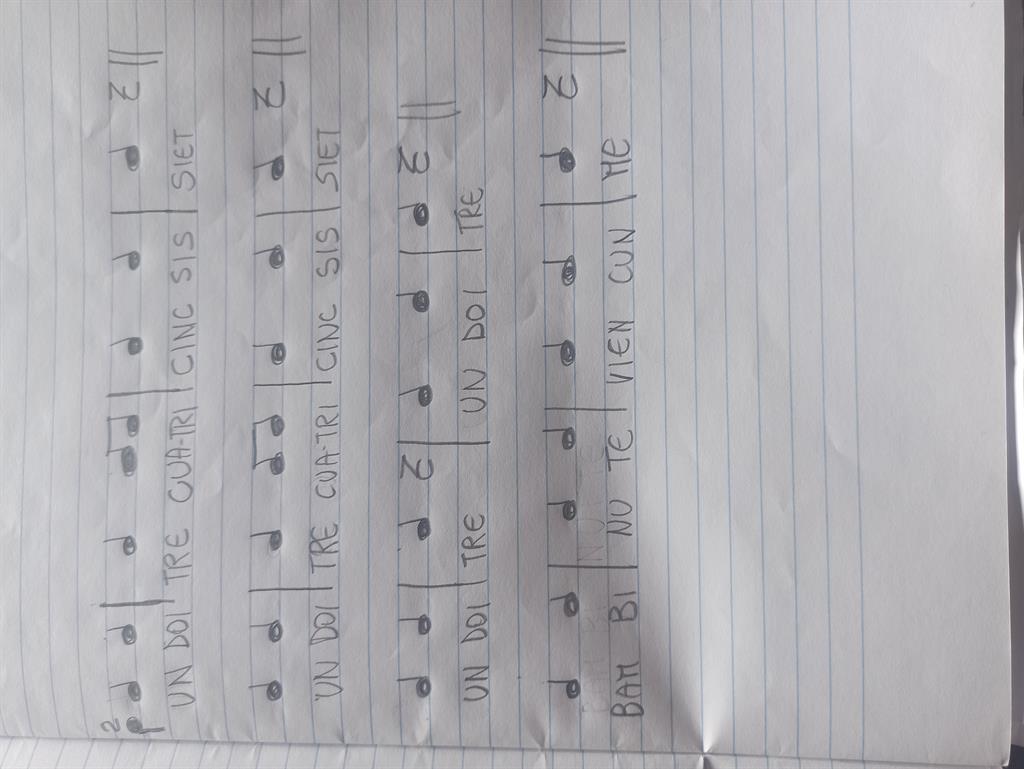 2
UN DOI | TRE CUA-TRI | CINC SIS | SIET
UN DOI | TRE CUA-TRI | CINC SIS | SIET
UN DOI | TRE | UN DOI | TRE
BAM BI | NU TE | VIEN CUN | ME